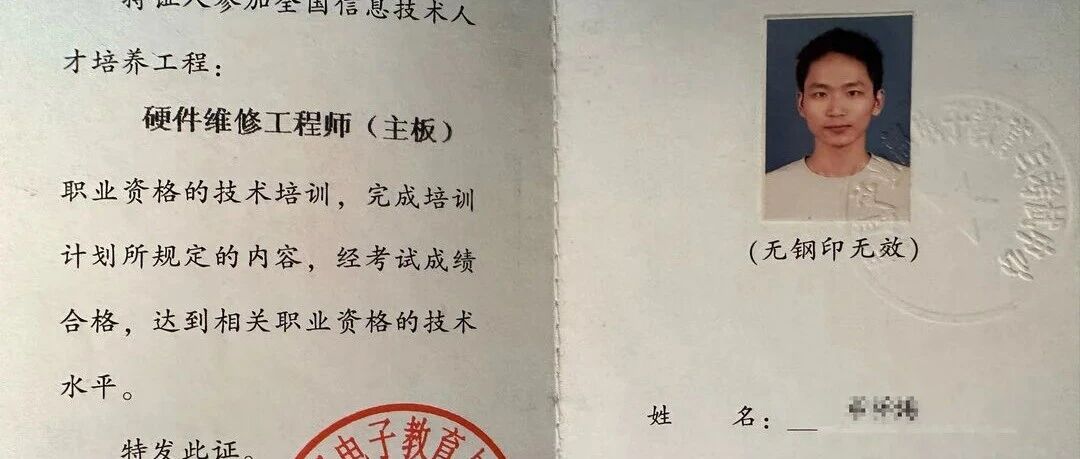 持证人参加全国信息技术人
才培养工程：
硬件维修工程师（主板）
职业资格的技术培训，完成培训
计划所规定的内容，经考试成绩
合格，达到相关职业资格的技术
水平。
特发此证。
电子教育
(无钢印无效)
姓 名：